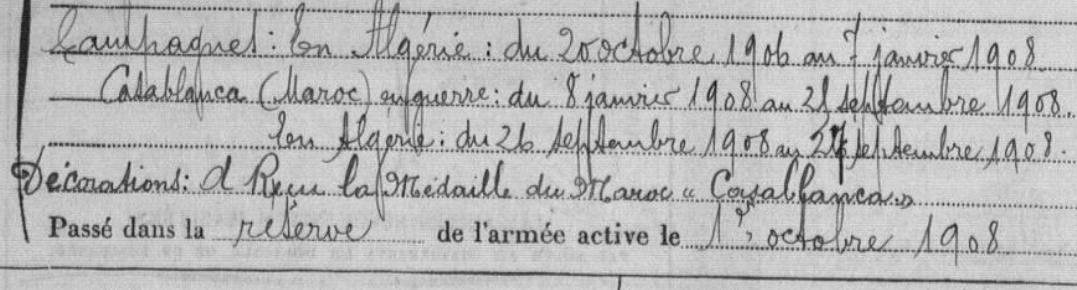 Campagnes: En Algérie: du 20 octobre 1906 au 7 janvier 1908
Casablanca (Maroc) en guerre: du 8 janvier 1908 au 25 septembre 1908.
En Algérie: du 26 septembre 1908 au 27 septembre 1908.
Décorations: A Reçu la Médaille du Maroc « Casablanca »
Passé dans la réserve de l'armée active le 1er octobre 1908